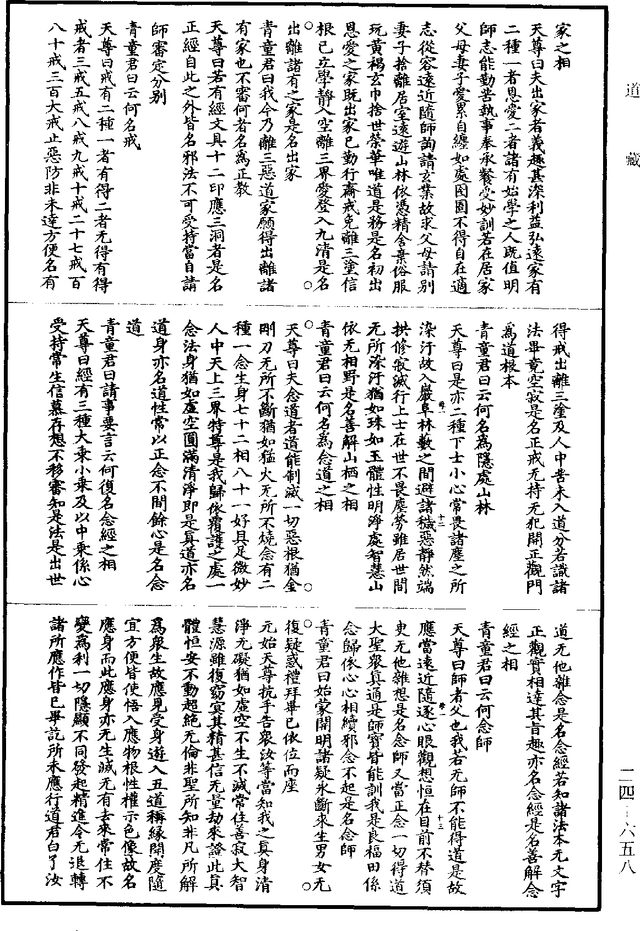 道藏
家之相
天尊曰夫出家者義趣甚深利益弘遠家有
二種一者恩愛二者諸有始學之人既值明
師志能勤苦執事奉承餐受妙訓若在居家
父母妻子愛累自纏如處囹圄不得自在適
志從容遠近隨師詢請玄業故求父母請別
妻子捨離居室遠遊山林依憑精舍棄俗服
玩黃褐玄巾捨世榮華唯道是務是名初出
恩愛之家既出家已勤行齋戒免離三塗信
根已立學靜入空離三界愛登入九清是名
出離諸有之家是名出家
青童君曰我今乃離三惡道家願得出離諸
有家也不審何者名為正教
天尊曰若有經文具十二印應三洞者是名
正經自此之外皆名邪法不可受持當自請
師審定分別
青童君曰云何名戒
天尊曰戒有二種一者有得二者无得有得
戒者三戒五戒八戒九戒十戒二十七戒百
八十戒三百大戒止惡防非未達方便名有
得戒出離三塗及人中苦未入道分若識諸
法畢竟空寂是名正戒无持无犯開正觀門
為道根本
青童君曰云何名為隱處山林
天尊曰是亦二種下士小心常畏諸塵之所
染汙故入巖阜林藪之間避諸穢惡靜然端
拱修寂滅行上士在世不畏塵勞雖居世間
无所染汙猶如珠如玉體性明淨處智慧山
依无相野是名善解山栖之相
青童君曰云何名為念道之相
天尊曰夫念道者道能制滅一切惡根猶金
剛刀无所不斷猶如猛火无所不燒念有二
種一念生身七十二相八十一好具足微妙
人中天上三界特尊是我歸依覆護之處一
念法身猶如虛空圓滿清淨即是真道亦名
道身亦名道性常以正念不間餘心是名念
道
青童君曰請事要言云何復名念經之相
天尊曰經有三種大乘小乘及以中乘係心
受持常生信慕存想不移審知是法是出世
道无他雜念是名念經若知諸法本无文字
正觀實相達其旨趣亦名念經是名善解念
經之相
青童君曰云何念師
天尊曰師者父也我若无師不能得道是故
應當遠近隨逐心眼觀想恒在目前不替須
臾无他雜想是名念師又當正念一切得道
大聖眾真通是師寶皆能訓我是良福田係
念歸依心心相續邪念不起是名念師
青童君曰始蒙開明諸疑氷斷來生男女无
復疑惑禮拜畢已依位而座
元始天尊抗手告眾汝等當知我之真身清
淨无礙猶如虛空不生不滅常住善寂大智
慧源雖復窈冥其精甚信无量劫來證此真
體恒安不動超絕无倫非聖所知非凡所解
為眾生故應見受身遊入五道稱緣開度隨
宜方便皆使悟入應物根性權示色像故名
應身而此應身亦无生滅无有去來常住不
變為利一切隱顯不同發起精進令无退轉
諸所應作皆已畢訖所未應行道君白了汝
二四-六五八